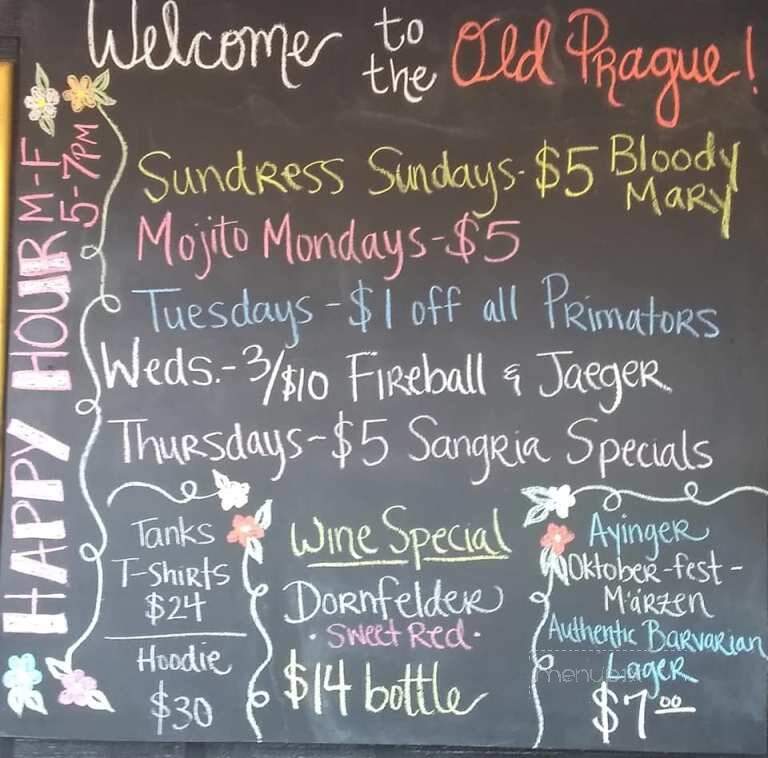 Welcome to the Old Prague!
HAPPY HOUR M-F
5-7PM
Sundress Sundays- $5 Bloody Mary
Mojito Mondays-$5
Tuesdays -$1 off all Primators
Weds.-3/$10 Fireball & Jaeger
Thursdays-$5 Sangria Specials
Tanks
T-Shirts
$24
Hoodie
$30
Wine Special
Dornfelder
·Sweet Red·
$14 bottle
Ayinger
Oktober-fest-
Märzen
Authentic Barvarian
Lager
$7.00